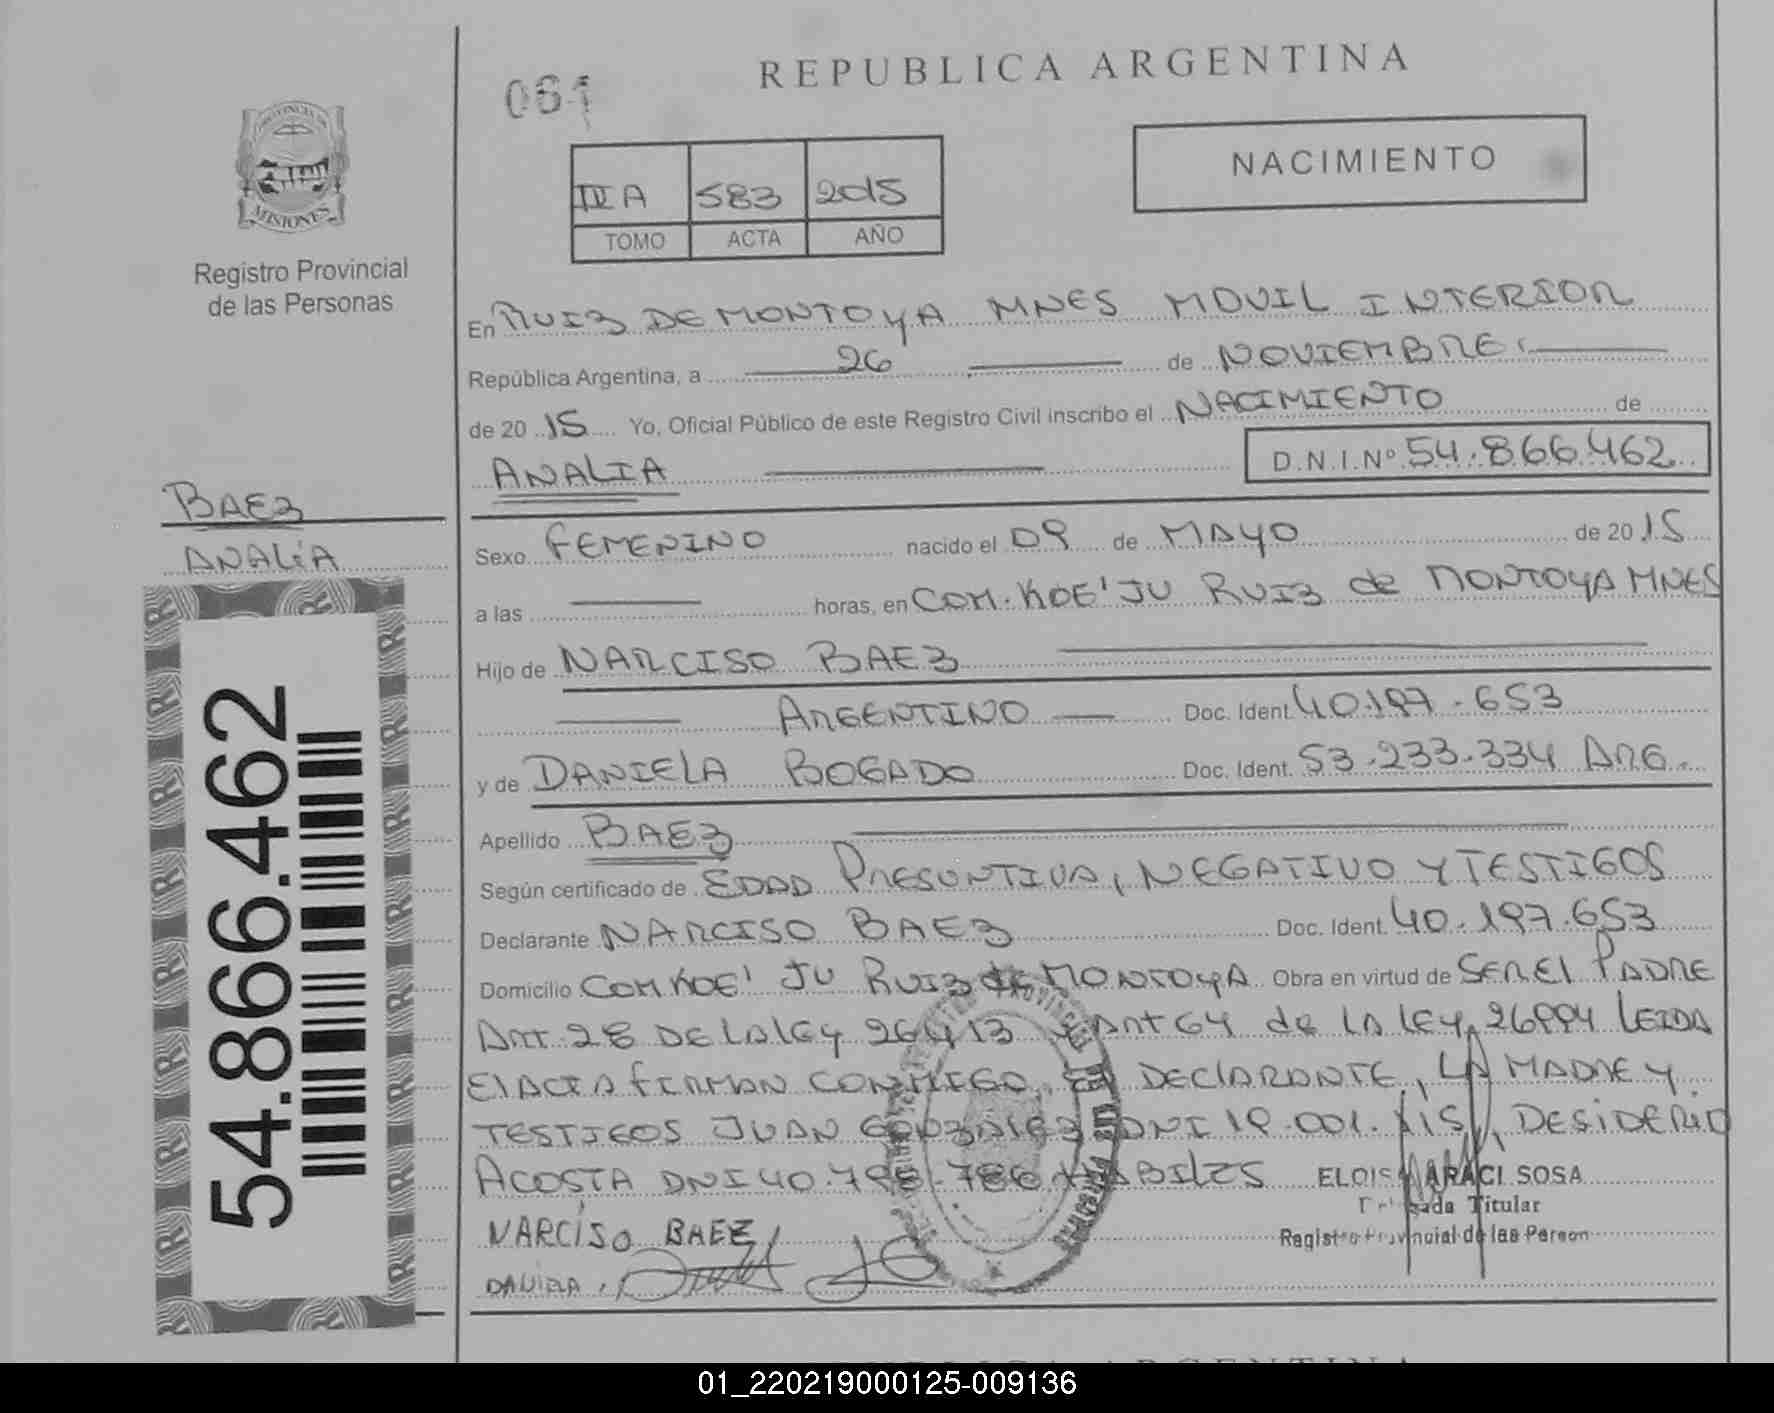 REPUBLICA ARGENTINA
061
NACIMIENTO
PROVINCIA DE
MISIONES
Registro Provincial
de las Personas
II A 583 2015
TOMO ACTA AÑO
En RUIZ DE MONTOYA MNES MOVIL INTERIOR
República Argentina, a 26 de NOVIEMBRE
de 20 15 Yo, Oficial Público de este Registro Civil inscribo el NACIMIENTO de
ANALIA D.N.I.Nº 54.866.462
BAEZ
ANALIA
Sexo FEMENINO nacido el 09 de MAYO de 20 15
a las horas, en COM. KOE'JU RUIZ de MONTOYA MNES
Hijo de NARCISO BAEZ
ARGENTINO Doc. Ident. 40.197.653
y de DANIELA BOGADO Doc. Ident. 53.233.334 ARG.
Apellido BAEZ
Según certificado de EDAD PRESUNTIVA, NEGATIVO Y TESTIGOS
Declarante NARCISO BAEZ Doc. Ident. 40.197.653
Domicilio COM KOE' JU RUIZ de MONTOYA Obra en virtud de SER EL PADRE
ART 28 DE LA LEY 26413 Y ART 64 de LA LEY 26994 LEIDA
EL ACTA FIRMAN CONMIGO, EL DECLARANTE, LA MADRE Y
TESTIGOS JUAN GONZALEZ DNI 19.001. DESIDERIO
ACOSTA DNI 40.798.786 HABILES
ELOISA ARACI SOSA
Delegada Titular
Registro Provincial de las Person
NARCISO BAEZ
54.866.462
01_220219000125-009136